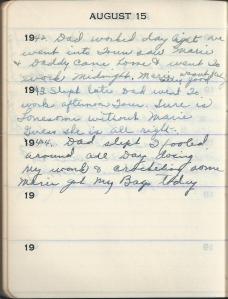 AUGUST 15
1942. Dad worked day a
went into Town saw Marie
& Daddy came home & went to
work Midnight. Marie
good
1943 Slept late Dad went to
work afternoon Tour. Sure is
lonesome without Marie
Guess she is all right.
1944. Dad slept I fooled
around all Day doing
my work & crocheting some
Marie got my Bags today
19
19